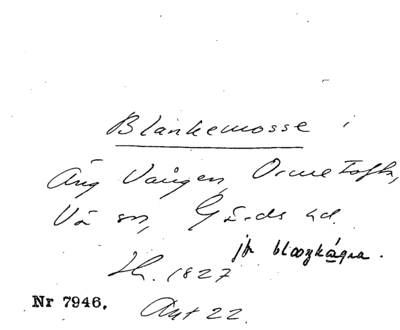 Blankemosse i
Äng Vången, Ormetofta,
Vä sn, Gärds hd.
jfr bloozkågra.
Sk. 1827
Nr 7946. Akt 22.